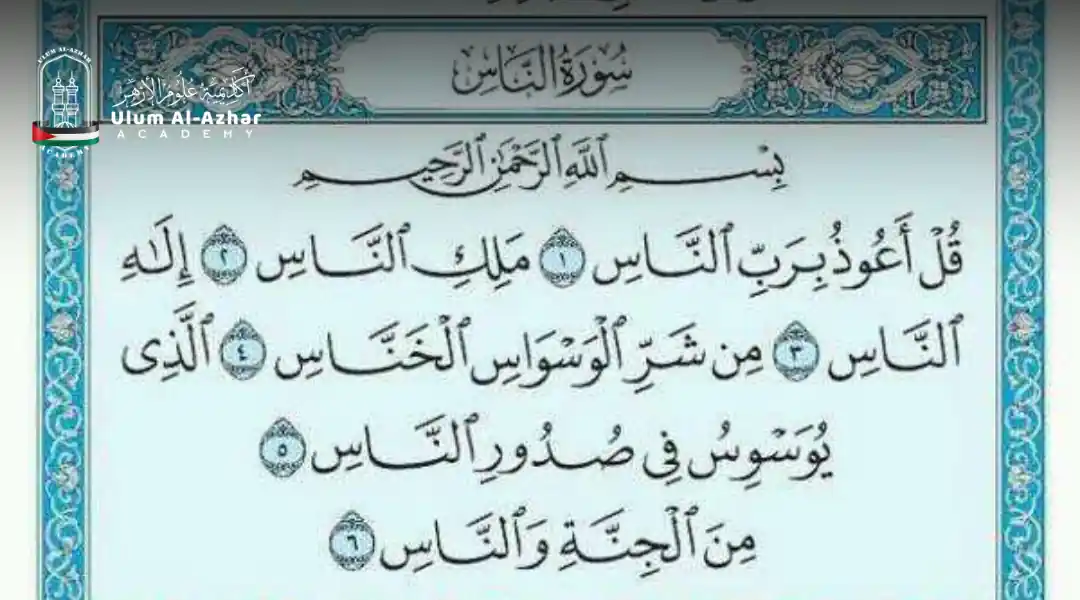 سُورَةُ النَّاسِ
أكاديمية علوم الأزهر
Ulum Al-Azhar
ACADEMY
ULUM AL-AZHAR
ACADEMY
بِسْمِ ٱللَّهِ ٱلرَّحْمَٰنِ ٱلرَّحِيمِ
قُلْ أَعُوذُ بِرَبِّ ٱلنَّاسِ ١ مَلِكِ ٱلنَّاسِ ٢ إِلَٰهِ
ٱلنَّاسِ ٣ مِن شَرِّ ٱلْوَسْوَاسِ ٱلْخَنَّاسِ ٤ ٱلَّذِى
يُوَسْوِسُ فِى صُدُورِ ٱلنَّاسِ ٥
مِنَ ٱلْجِنَّةِ وَٱلنَّاسِ ٦